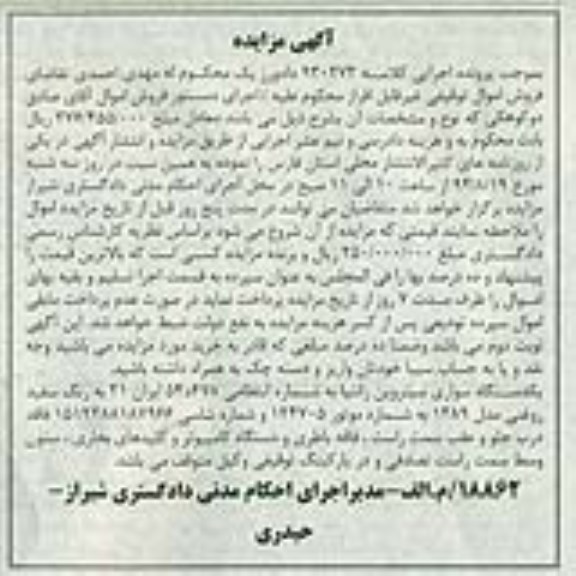 آگهی مزایده
بموجب پرونده اجرایی کلاسه ۹۳۰۲۷۳ دادورز یک محکوم له مهدی احمدی تقاضای
فروش اموال توقیفی غیرقابل افراز محکوم علیه / اجرای دستور فروش اموال آقای صادق
که نوع و مشخصات آن بشرح ذیل می باشد معادل مبلغ ریال
بابت محکوم به و هزینه دادرسی و نیم عشر اجرایی از طریق مزایده و انتشار آگهی در یکی
از روزنامه های کثیرالانتشار محلی استان فارس را نموده به همین سبب در روز سه شنبه
مورخ ۹۳/۸/۱۹ از ساعت ۱۰ الی ۱۱ صبح در محل اجرای احکام مدنی دادگستری شیراز
مزایده برگزار خواهد شد متقاضیان می توانند در مدت پنج روز قبل از تاریخ مزایده اموال
را ملاحظه نمایند قیمتی که مزایده از آن شروع می شود براساس نظریه کارشناس رسمی
دادگستری مبلغ ۲۵۰/۰۰۰/۰۰۰ ریال و برنده مزایده کسی است که بالاترین قیمت را
پیشنهاد و ده درصد بها را فی المجلس به عنوان سپرده به قسمت اجرا تسلیم و بقیه بهای
اموال را ظرف مدت ۷ روز از تاریخ مزایده پرداخت نماید در صورت عدم پرداخت مابقی
اموال سپرده تودیعی پس از کسر هزینه مزایده به نفع دولت ضبط خواهد شد. این آگهی
نوبت دوم می باشد وضمنا ده درصد مبلغی که قادر به خرید مورد مزایده می باشید وجه
نقد و یا به حساب سیبا خودش واریز و دسته چک به همراه داشته باشید.
یکدستگاه سواری سیتروین زانتیا به شماره انتظامی ایران به رنگ سفید
روغنی مدل ۱۳۸۹ به شماره موتور و شماره شاسی فاقد
درب جلو و عقب سمت راست ، فاقد باطری و دستگاه کامپیوتر و کلیدهای بخاری ، ستون
وسط سمت راست تصادفی و در پارکینگ توقیفی وکیل متوقف می باشد.
۱۸۸۶۲/م.الف-مدیراجرای احکام مدنی دادگستری شیراز-
حیدری